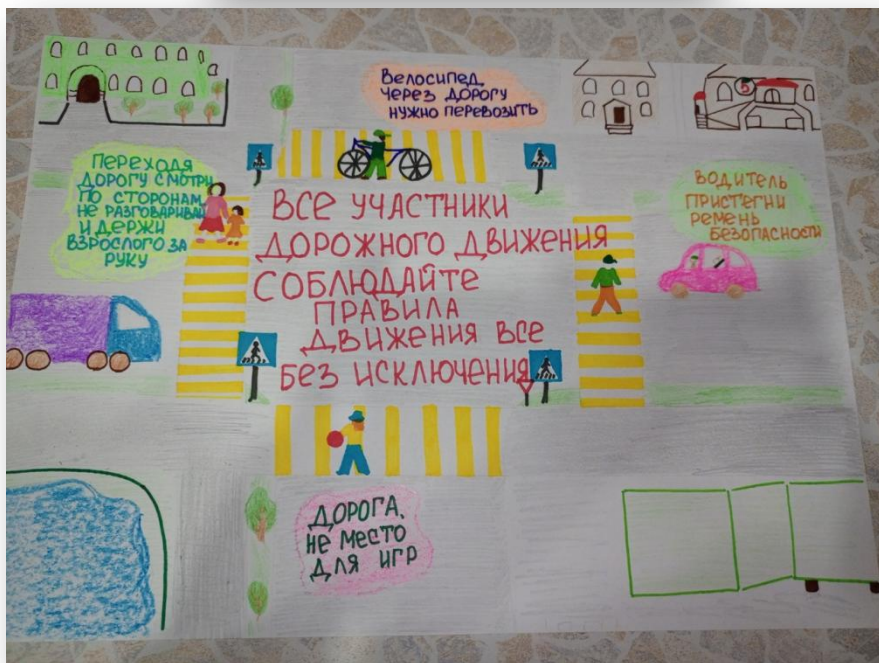 Велосипед
через дорогу
нужно перевозить
Переходя
дорогу смотри
по сторонам,
не разговаривай
и держи
взрослого за
руку
Все участники
дорожного движения
соблюдайте
правила
движения все
без исключения
Водитель
пристегни
ремень
безопасности
Дорога,
не место
для игр